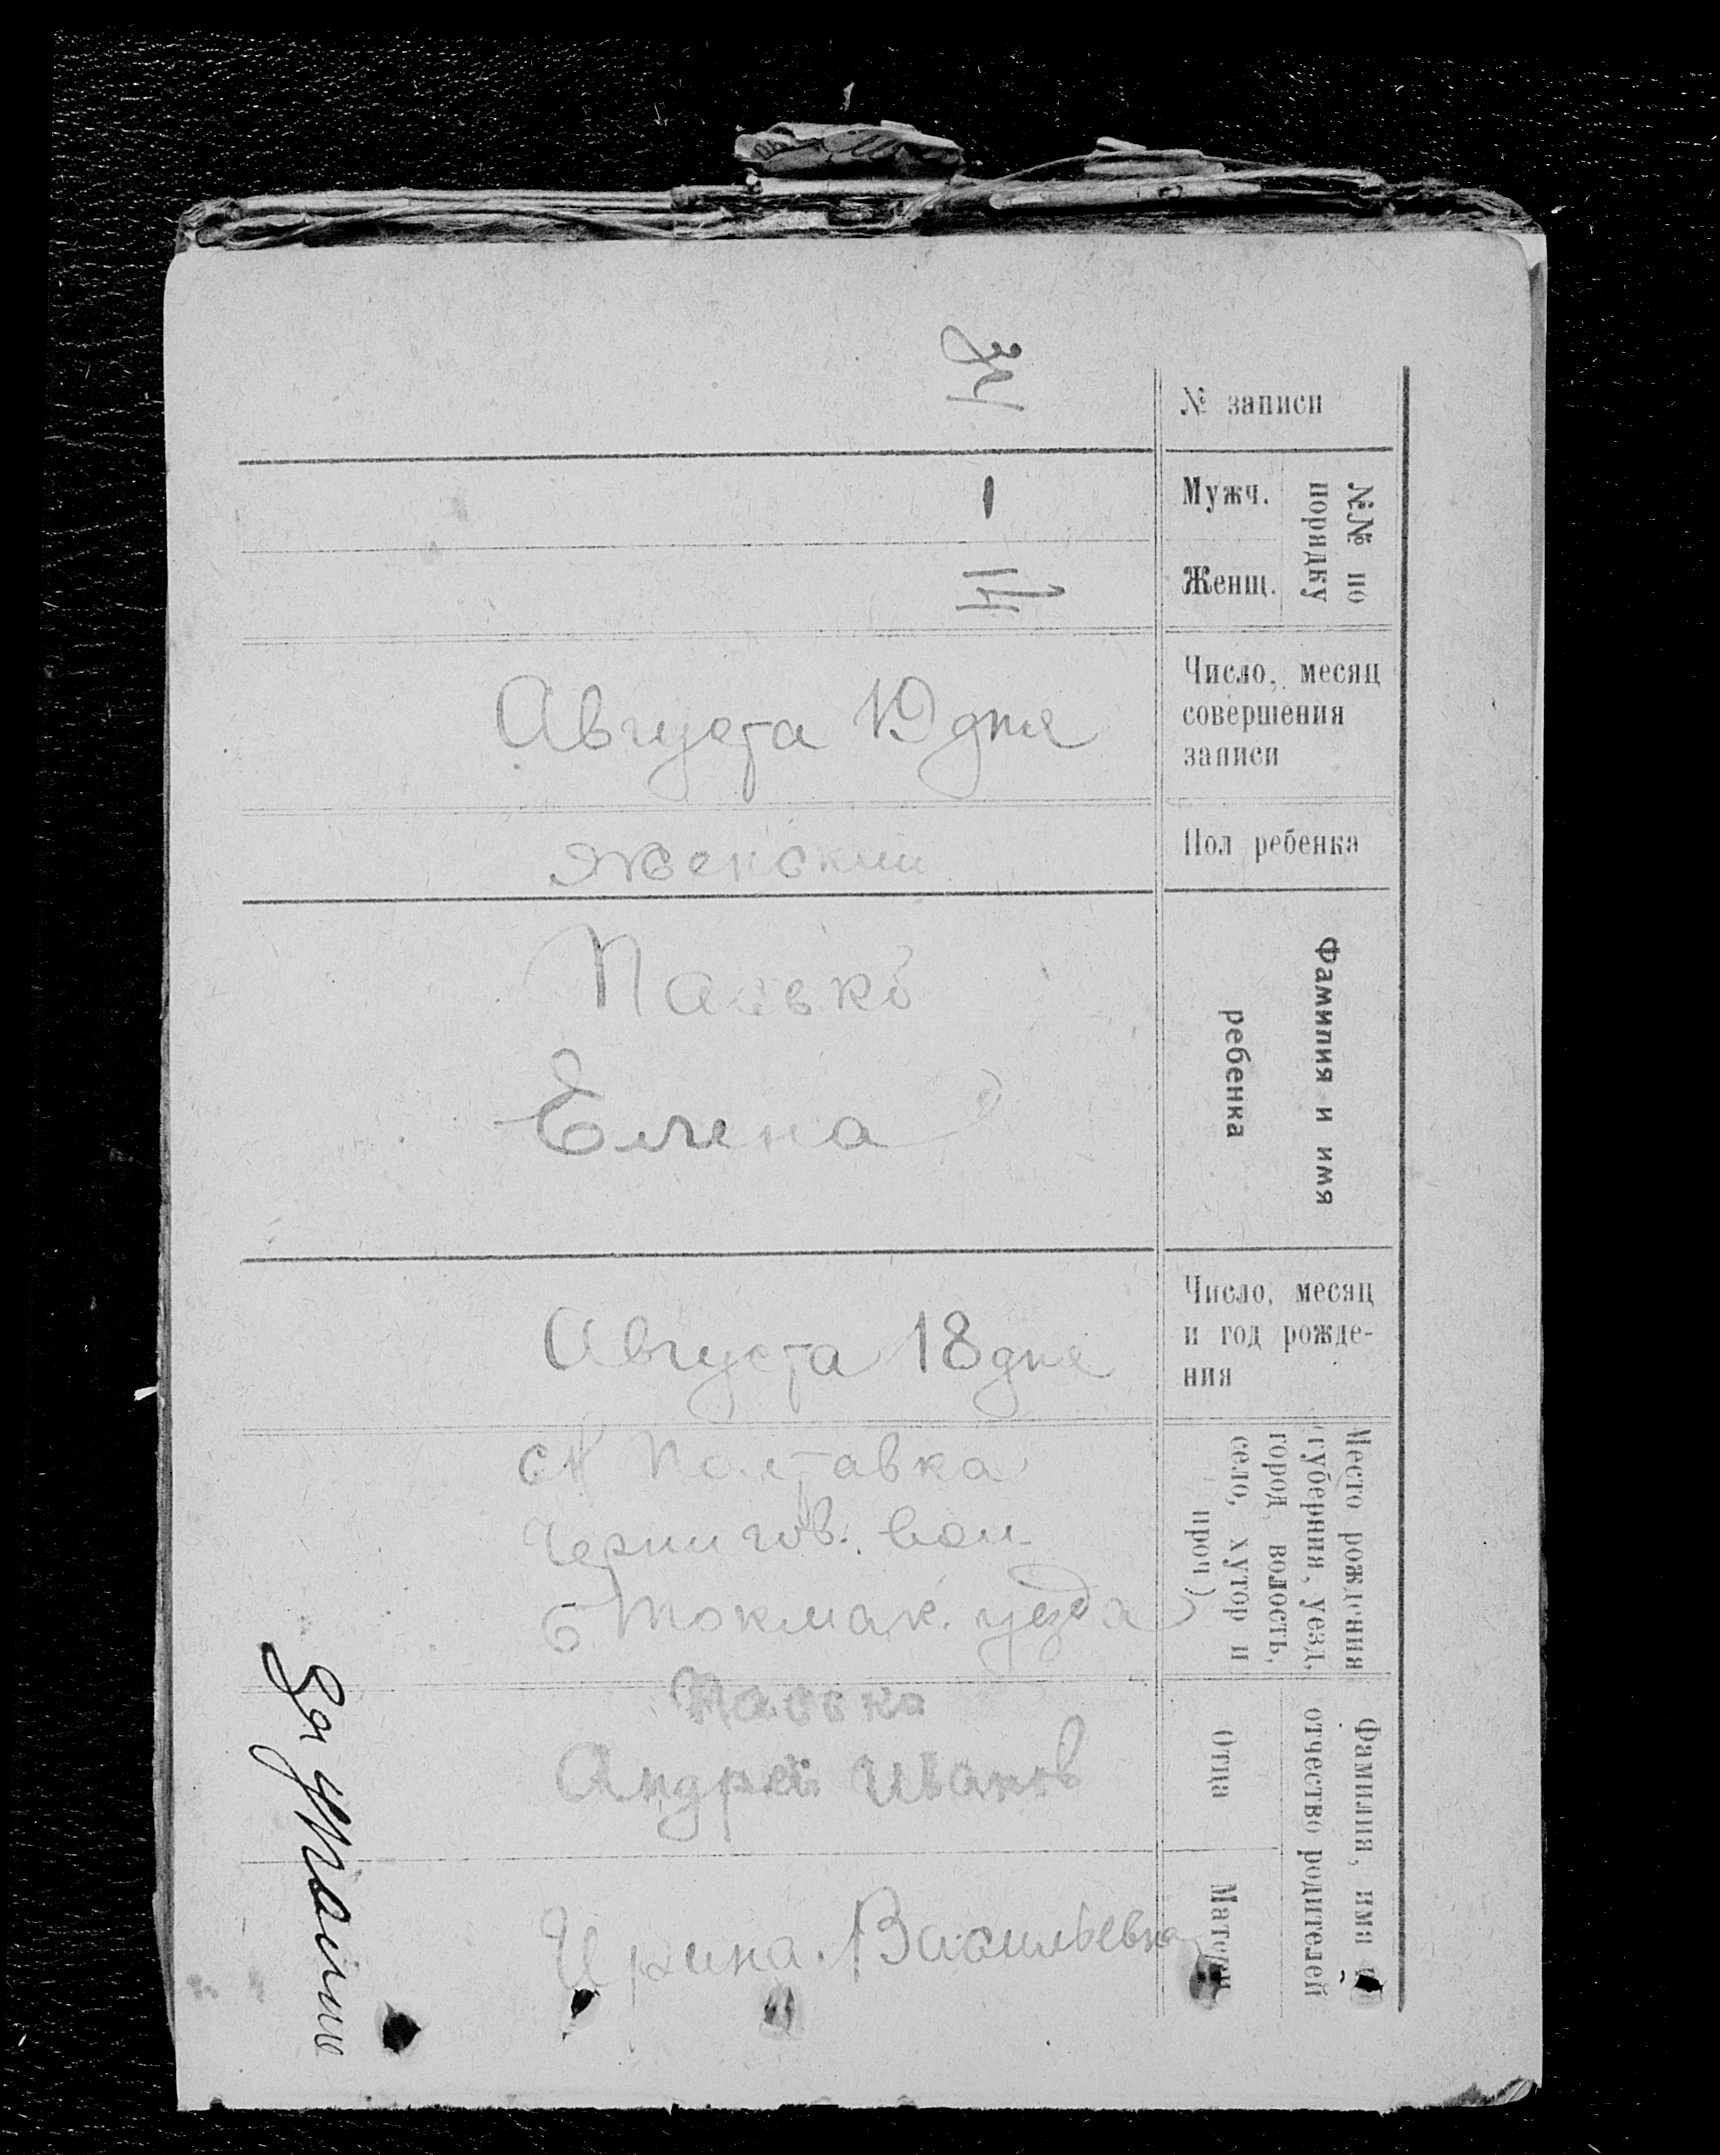 № записи
34
№№ по
порядку
Мужч.
-
Женщ.
14
Число, месяц
совершения
записи
Августа 19 дня
Пол ребенка
Женский
Фамилия и имя
ребенка
Пасько
Елена
Число, месяц
и год рожде-
ния
Августа 18 дня
Место рождения
(губерния, уезд,
город, волость,
село, хутор и
проч.)
Полтавка
Чернигов. вол
Б Токмак. уезда
Фамилия, имя и
отчество родителей
Отца
Пасько
Андрей Иванов
Матери
Ирина Васильевна